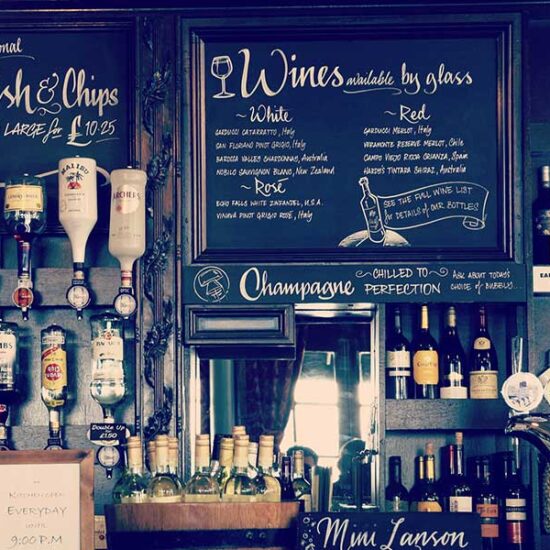 onal
sh & Chips
LARGE for £10·25
Wines available by glass
~White
CARDUCCI CATARRATTO, Italy
SAN FLORIANO PINOT GRIGIO, Italy
BAROCCA VALLEY CHARDONNAY, Australia
NOBILO SAUVIGNON BLANC, New Zealand
~Rosé
ECHO FALLS WHITE ZINFANDEL, U.S.A.
VININA PINOT GRIGIO ROSÉ, Italy
~Red
CARDUCCI MERLOT, Italy
VERAMONTE RESERVE MERLOT, Chile
CAMPO VIEJO RIOJA CRIANZA, Spain
HARDYS TINTARA SHIRAZ, Australia
SEE THE FULL WINE LIST
for DETAILS of OUR BOTTLES
Champagne
~CHILLED TO~
PERFECTION
ASK ABOUT TODAY'S
CHOICE OF BUBBLY...
MALIBU
ARCHERS
BACARDI
Double Up
£1.50
KITCHEN OPEN
EVERYDAY
UNTIL
9:00 P.M
Mini Lanson